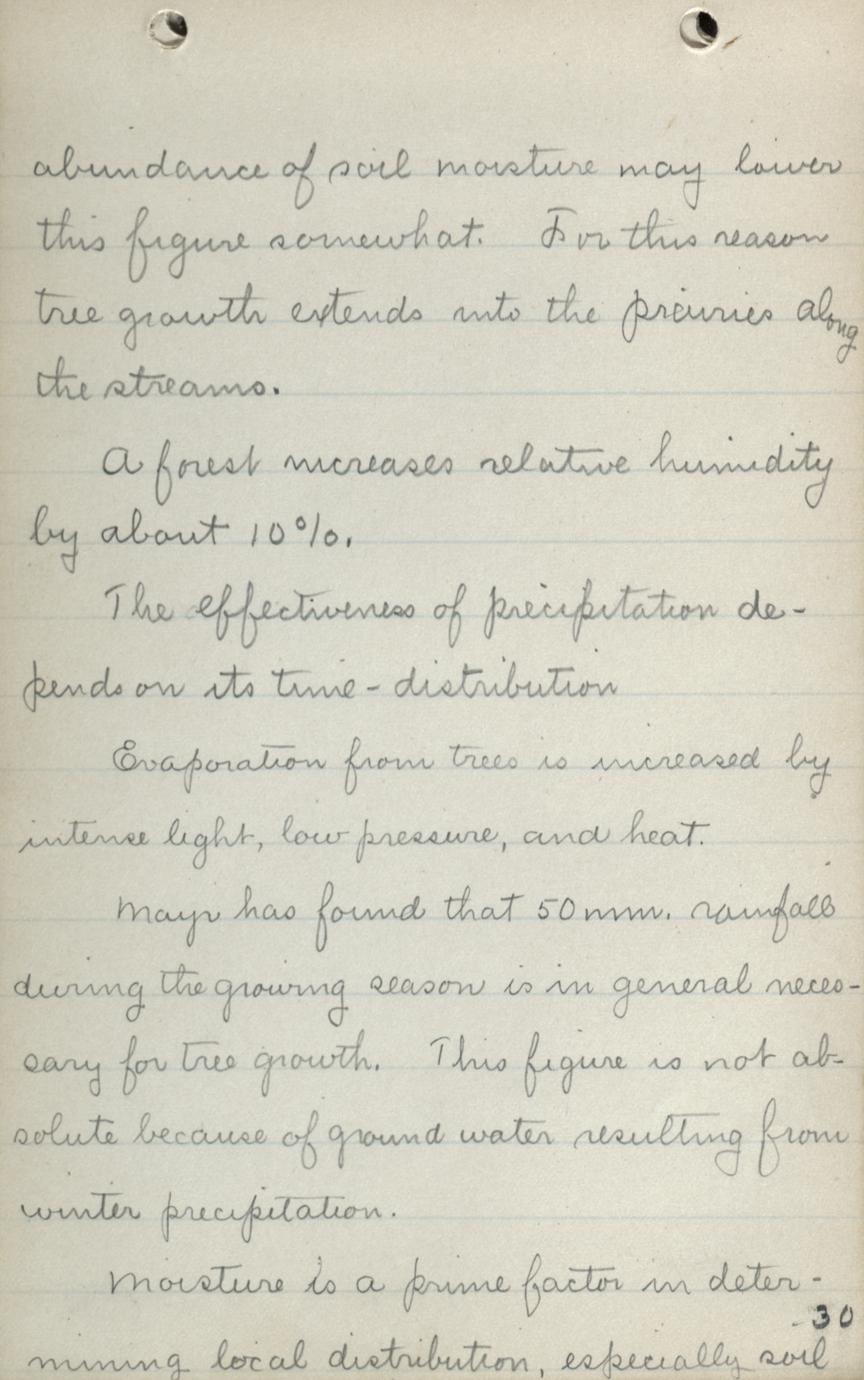 abundance of soil moisture may lower
this figure somewhat. For this reason
tree growth extends into the prairies along
the streams.
A forest increases relative humidity
by about 10%.
The effectiveness of precipitation de-
pends on its time-distribution
Evaporation from trees is increased by
intense light, low pressure, and heat.
Mayr has found that 50 mm. rainfall
during the growing season is in general neces-
sary for tree growth. This figure is not ab-
solute because of ground water resulting from
winter precipitation.
Moisture is a prime factor in deter-
30
mining local distribution, especially soil